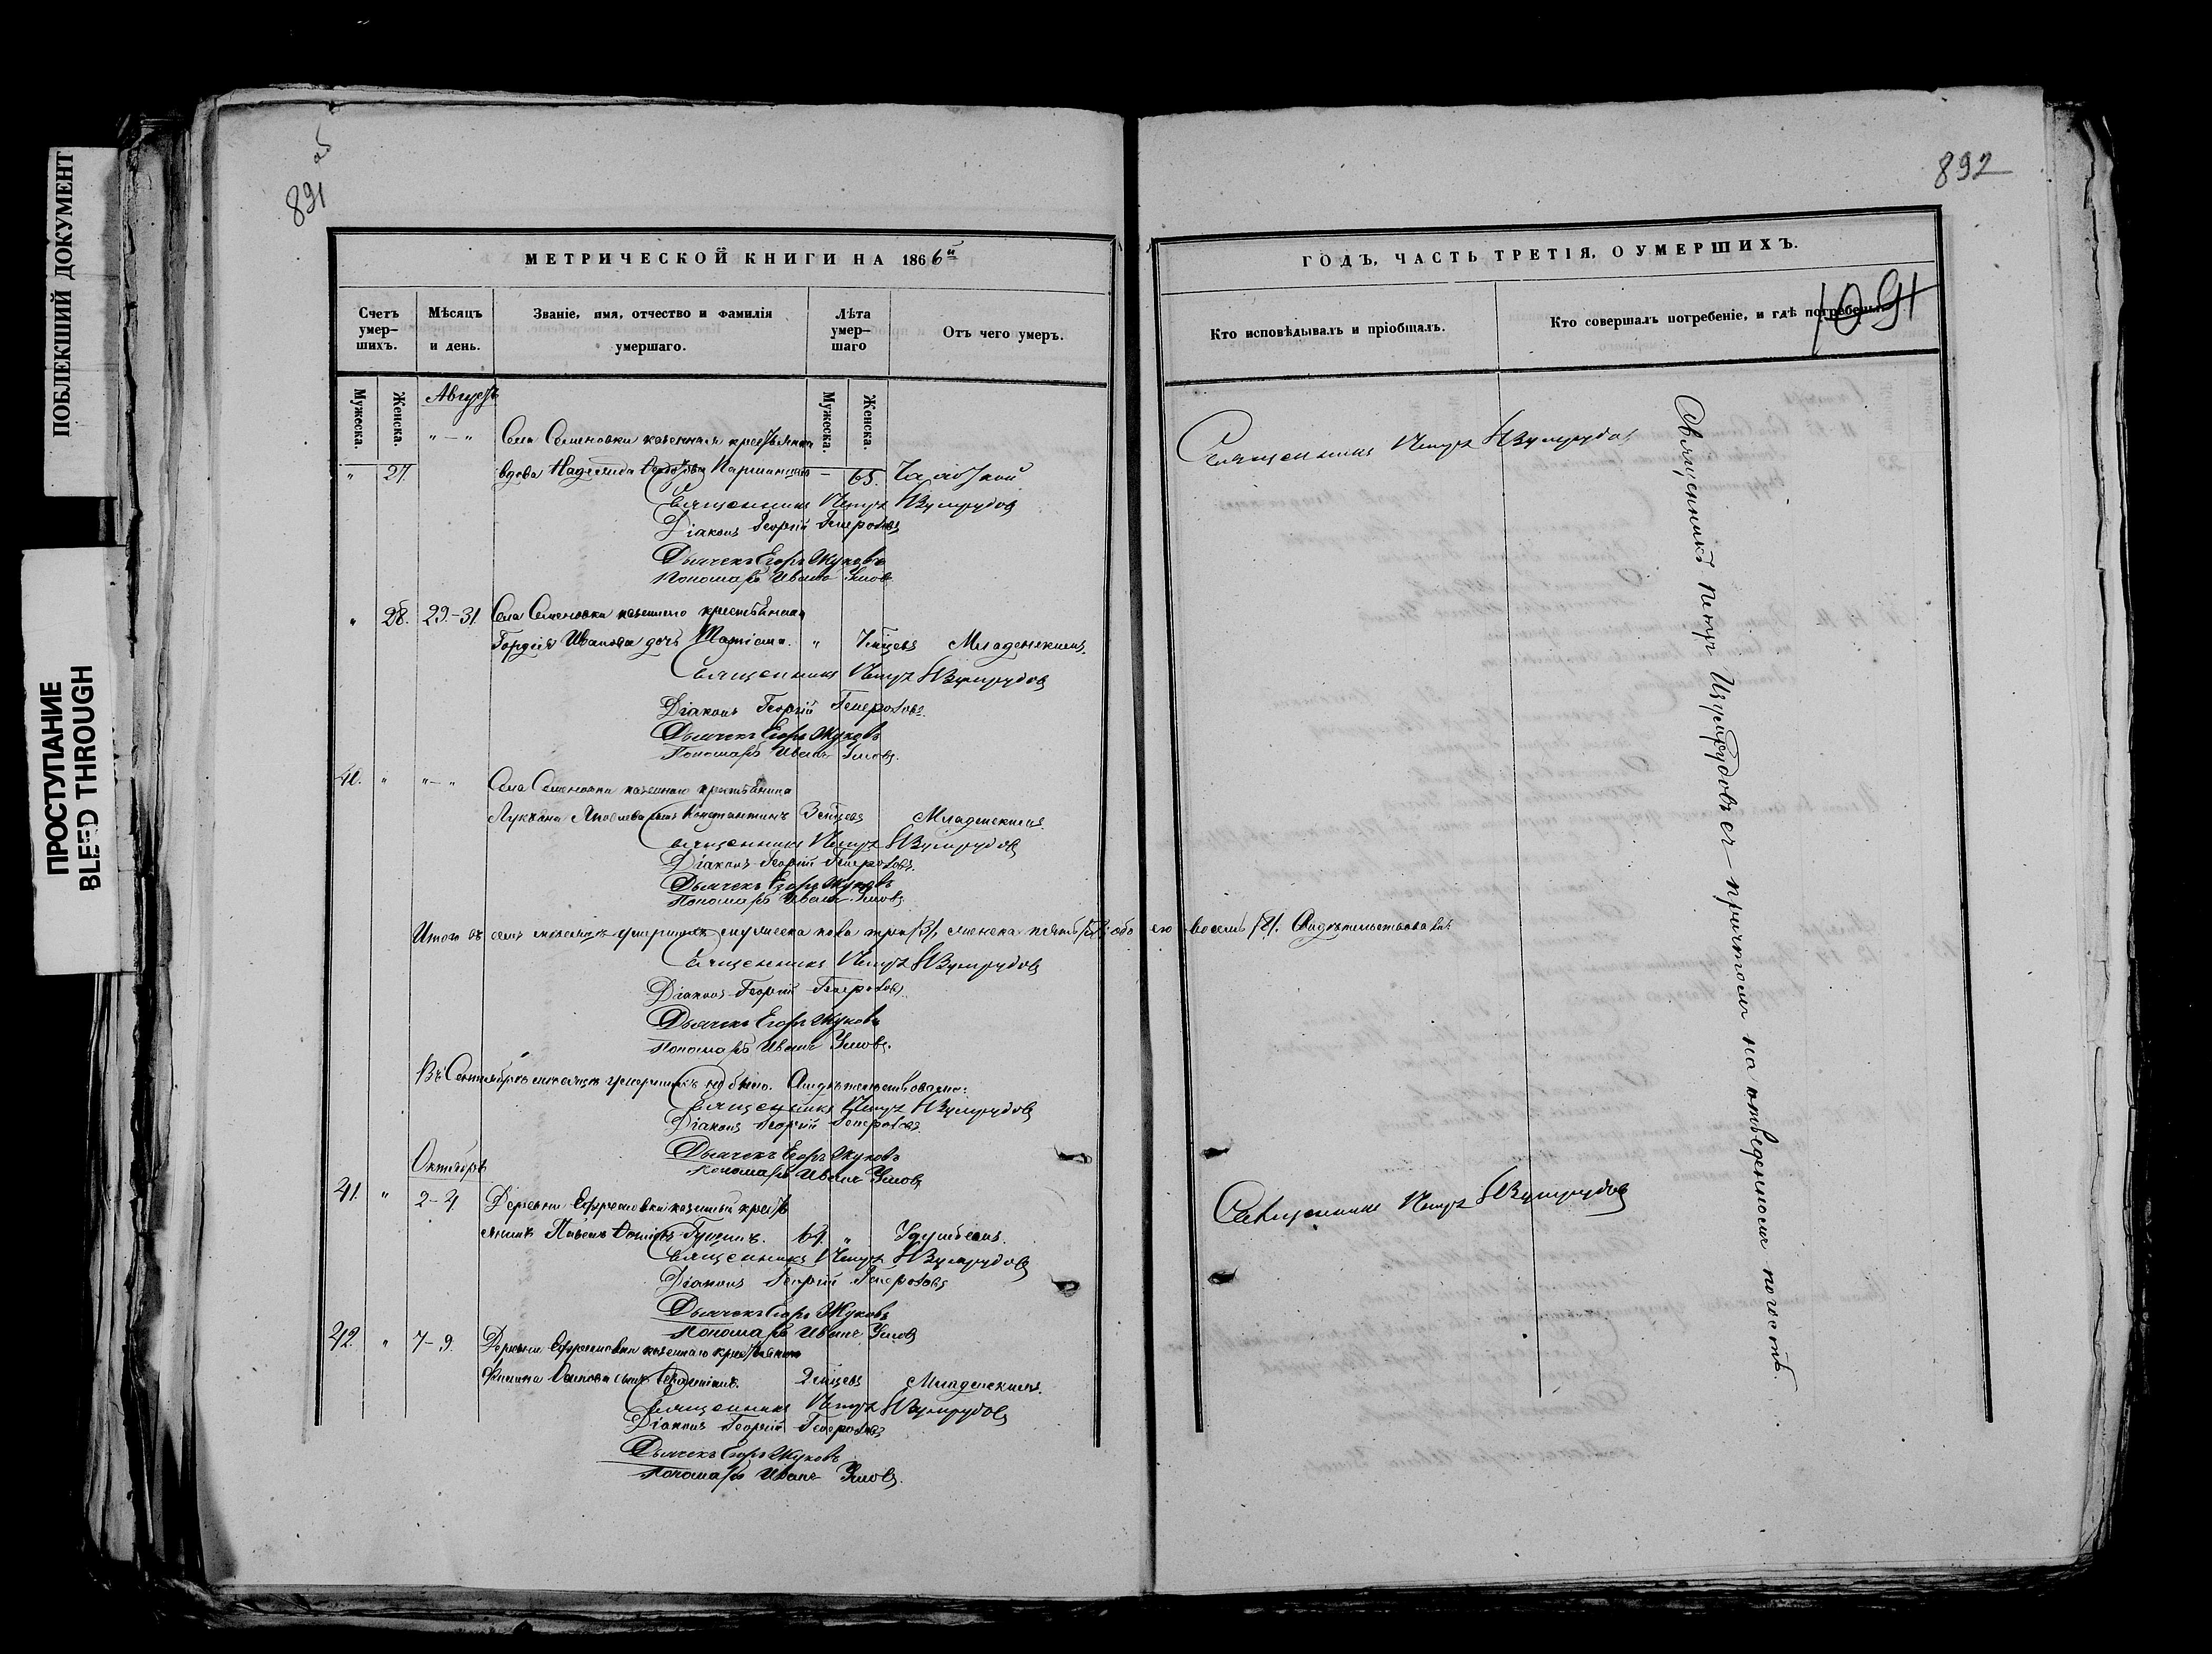 ПОБЛЕКШИЙ ДОКУМЕНТ
ПРОСТУПАНИЕ
BLEED THROUGH
891
МЕТРИЧЕСКОЙ КНИГИ НА 1866й
Счетъ умер-шихъ.
Мѣсяцъ и день.
Званіе, имя, отчество и фамилія умершаго.
Лѣта умер-шаго
Отъ чего умеръ.
Мужеска. Женска.
Мужеска. Женска.
Августъ
" — " Села Семеновки казенная крестьянка
" 27. вдова Надежда — 65. Чахоткой
Священникъ Петръ Изумрудовъ
Діаконъ Георгій Генерозовъ
Дьячекъ Егоръ Жуковъ
Пономарь Иванъ Умовъ
" 28. 29-31. Села Семеновки казеннаго крестьянина
Гордія Иванова дочь " Младенческимъ.
Священникъ Петръ Изумрудовъ
Діаконъ Георгій Генерозовъ.
Дьячекъ Егоръ Жуковъ
Пономарь Иванъ Умовъ.
40. " "—" Села Семеновки казеннаго крестьянина
Лукіана Яковлева сынъ Константинъ 3 мѣсяцевъ Младенческимъ.
Священникъ Петръ Изумрудовъ
Діаконъ Георгій Генерозовъ.
Дьячекъ Егоръ Жуковъ
Пономарь Иванъ Умовъ.
Итого въ семъ мѣсяцѣ умершихъ мужеска пола три /3/, женска пять /5/, обоего восемь /8/. Свидѣтельствовали:
Священникъ Петръ Изумрудовъ
Діаконъ Георгій Генерозовъ.
Дьячекъ Егоръ Жуковъ
Пономарь Иванъ Умовъ.
Въ Сентябрѣ мѣсяцѣ умершихъ не было. Свидѣтельствовали:
Священникъ Петръ Изумрудовъ
Діаконъ Георгій Генерозовъ.
Дьячекъ Егоръ Жуковъ
Пономарь Иванъ Умовъ
Октябрь
41. " 2-4 Деревни Ефремовки казенный кресть
янинъ Павелъ "
Священникъ Петръ Изумрудовъ
Діаконъ Георгій Генерозовъ
Дьячекъ Егоръ Жуковъ
Пономарь Иванъ Умовъ
42. " 7-9. Деревни Ефремовки казеннаго крестьянина
Филипа Осипова сынъ 2 мѣсяцевъ Младенческимъ.
Священникъ Петръ Изумрудовъ
Діаконъ Георгій Генерозовъ
Дьячекъ Егоръ Жуковъ
Пономарь Иванъ Умовъ.
892
ГОДЪ, ЧАСТЬ ТРЕТІЯ, О УМЕРШИХЪ.
Кто исповѣдывалъ и пріобщалъ.
Кто совершалъ погребеніе, и гдѣ погребены.
1091
Священникъ Петръ Изумрудовъ
Священникъ Петръ Изумрудовъ съ причтомъ на отведенномъ погостѣ.
Священникъ Петръ Изумрудовъ